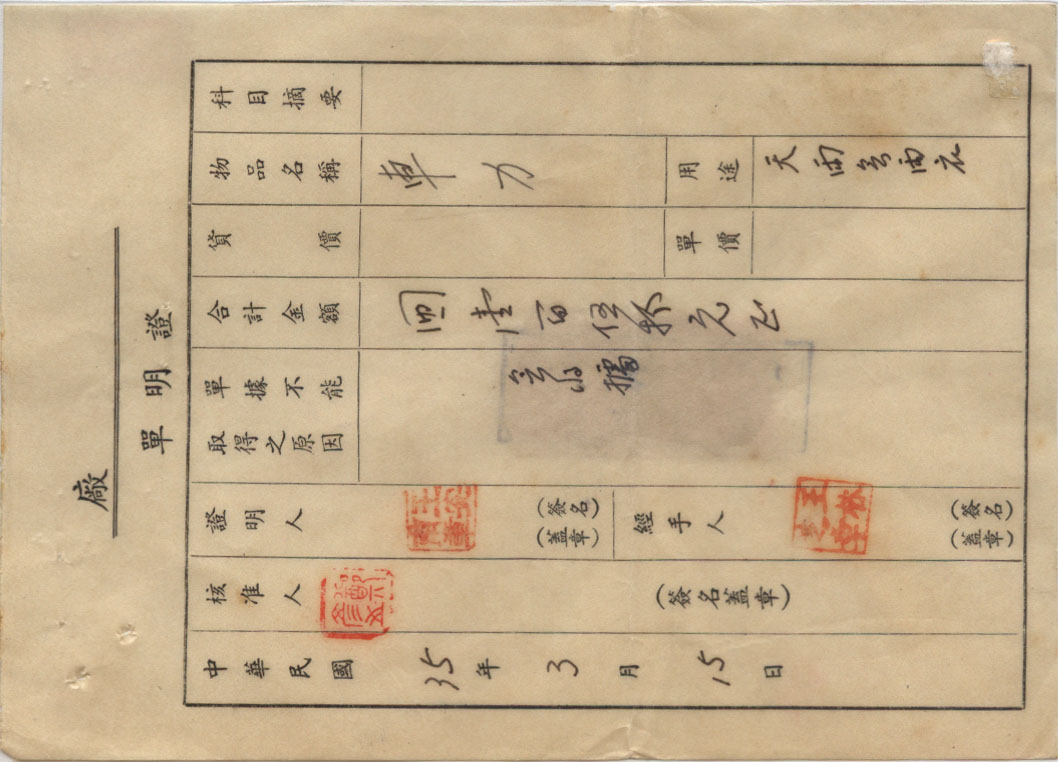 廠
證明單
科目摘要
物品名稱 車力 用途 天雨無雨衣
貨價 單價
合計金額 壹百伍拾元正
單據不能取得之原因 無收據
證明人 (簽名蓋章) 經手人 (簽名蓋章)
核准人 (簽名蓋章)
中華民國 35年3月15日